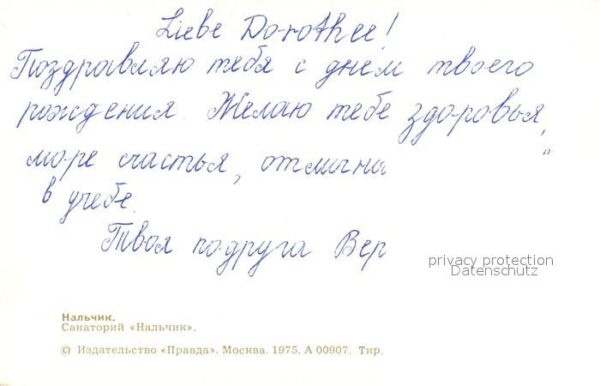 Liebe Dorothee!
Поздравляю тебя с днём твоего
рождения. Желаю тебе здоровья,
море счастья,
в учебе.
Твоя подруга Вер
privacy protection
Datenschutz
Нальчик.
Санаторий «Нальчик».
© Издательство «Правда». Москва. 1975. А 00907. Тир.